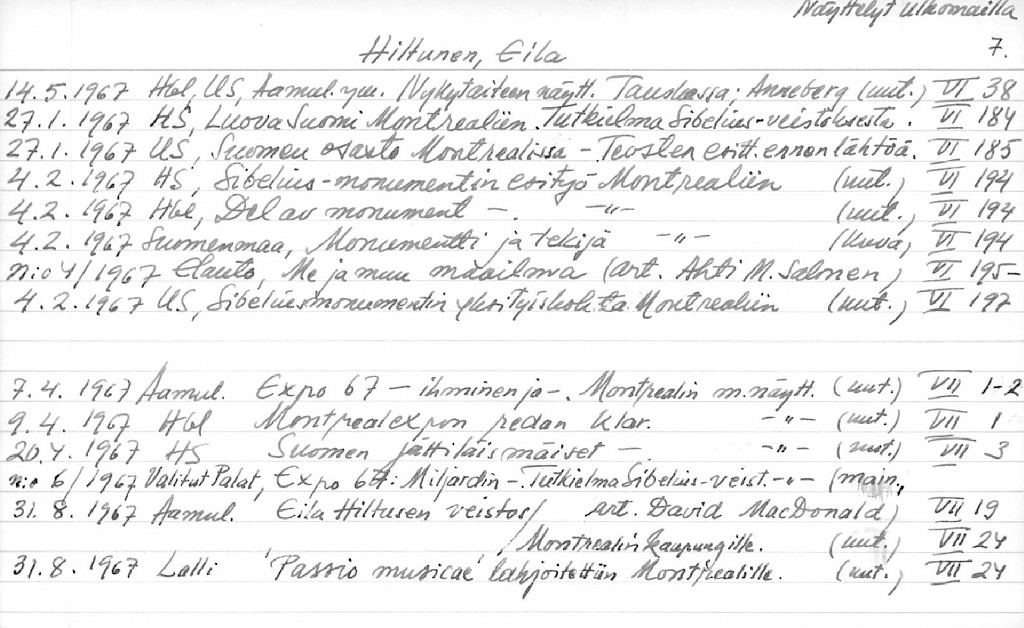 Näyttelyt ulkomailla
7.
Hiltunen, Eila
14.5.1967 Hbl, US, Aamul. ym. /Nykytaiteen näytt. Tanskassa; Anneberg (uut.) VI 38
27.1.1967 HS, Luova Suomi Montrealiin. Tutkielma Sibelius-veistoksesta. VI 184
27.1.1967 US, Suomen osasto Montrealissa - Teosten esitt. ennen lähtöä. VI 185
4.2.1967 HS, Sibelius-monumentin esityö Montrealiin (uut.) VI 194
4.2.1967 Hbl, Del av monument -. -"- (uut., VI 194
4.2.1967 Suomenmaa, Monumentti ja tekijä -"- (kuva) VI 194
n:o 4/1967 Elanto, Me ja muu maailma (art. Ahti M. Salonen) VI 195-
4.2.1967 US, Sibeliusmonumentin yksityiskohta Montrealiin (uut.) VI 197
7.4.1967 Aamul. Expo 67 - ihminen ja -. Montrealin m.näytt. (uut.) VII 1-2
9.4.1967 Hbl Montrealexpon redan klar. -"- (uut.) VII 1
20.4.1967 HS Suomen jättiläismäiset -. -"- (uut.) VII 3
n:o 6/1967 Valitut Palat, Expo 67: Miljardin -. Tutkielma Sibelius-veist. -"- (main.,
31.8.1967 Aamul. Eila Hiltusen veistos/ art. David MacDonald) VII 19
/Montrealin kaupungille. (uut.) VII 24
31.8.1967 Lalli 'Passio musicae' lahjoitettiin Montrealille. (uut.) VII 24